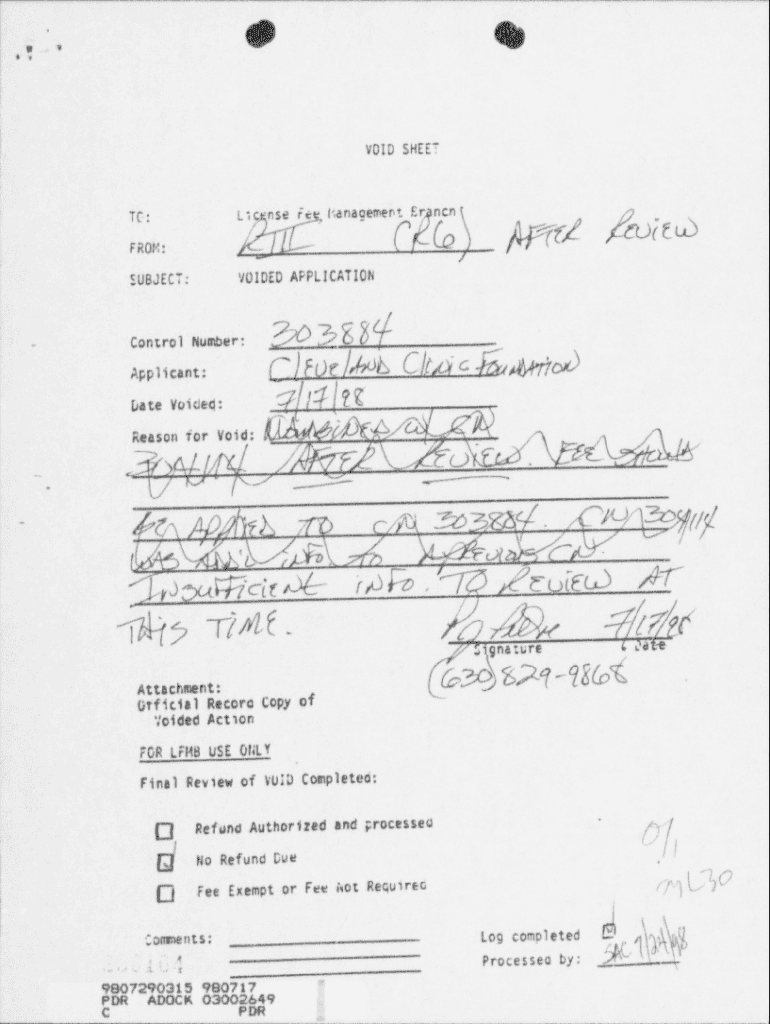 VOID SHEET
TO: License Fee Management Branch
FROM: RIII (R6) AFTER REVIEW
SUBJECT: VOIDED APPLICATION
Control Number: 303884
Applicant: Cleveland Clinic Foundation
Date Voided: 7/17/98
Reason for Void: COMBINED W/ CN
AFTER REVIEW. FEE SHOULD
BE APPLIED TO CN 303884. CN 304114
WAS ADD'L INFO TO A PREVIOUS CN.
INSUFFICIENT INFO. TO REVIEW AT
THIS TIME.
7/17/98
Signature Date
(630) 829-9868
Attachment:
Official Record Copy of
Voided Action
FOR LFMB USE ONLY
Final Review of VOID Completed:
Refund Authorized and processed
No Refund Due
Fee Exempt or Fee Not Required
Comments:
Log completed
Processed by: SAC 7/24/98
9807290315 980717
PDR ADOCK 03002649
C PDR